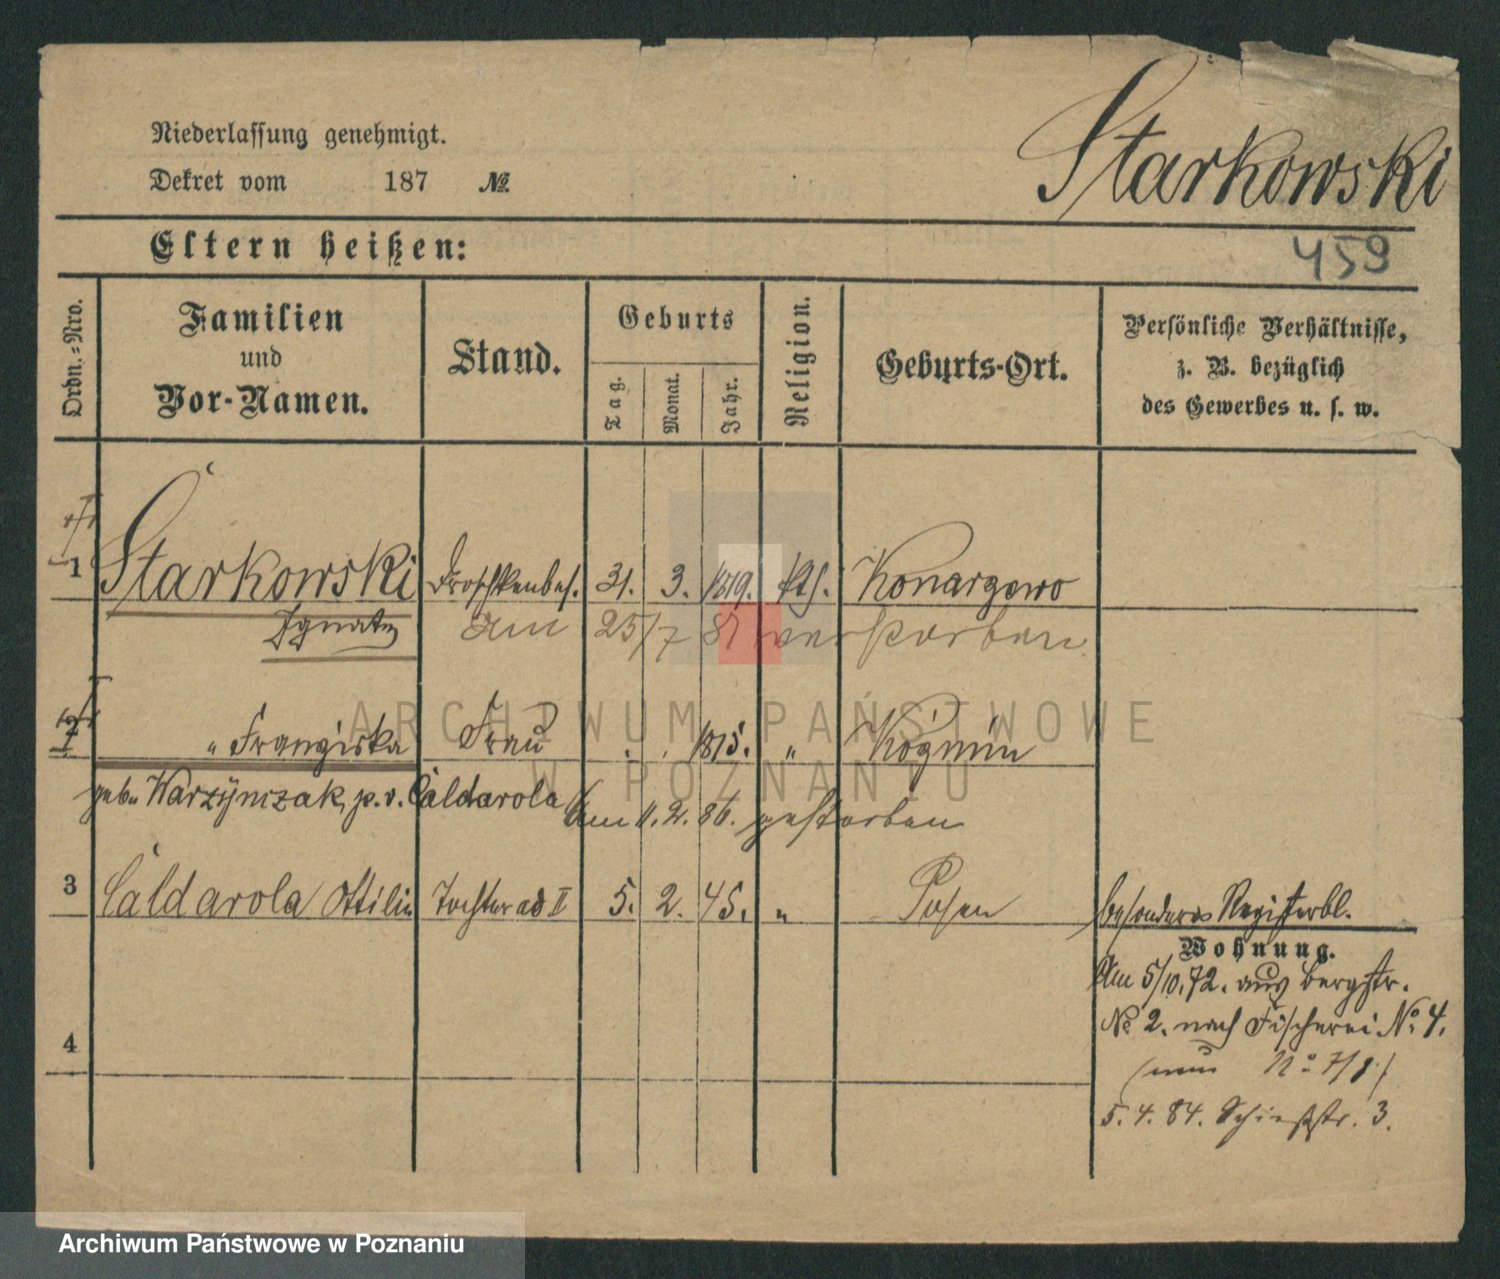 Niederlassung genehmigt.
Dekret vom 187 №
Starkowski
Eltern heißen:
459
Ordn.=Nro.
Familien
und
Vor-Namen.
Stand.
Geburts
Tag.
Monat.
Jahr.
Religion.
Geburts-Ort.
Persönliche Verhältnisse,
z. B. bezüglich
des Gewerbes u. s. w.
1 Starkowski Droschkenbes. 31. 3. 1819. kth. Konargewo
Ignatz Am 25/7 81 verstorben
2 " Franziska Frau . . 1815. " Kozmin
geb. Warzynczak, p. v. Caldarola Am 11. 2. 86. gestorben
3 Caldarola Ottilie Tochter ad II 5. 2. 45. " Posen besonderes Registerbl.
Wohnung.
Am 5/10. 72. aus Bergstr.
№ 2. nach Fischerei No. 4.
(nun No 7/8.)
4
5. 4. 84. Schießstr. 3.
ARCHIWUM PAŃSTWOWE
W POZNANIU
Archiwum Państwowe w Poznaniu